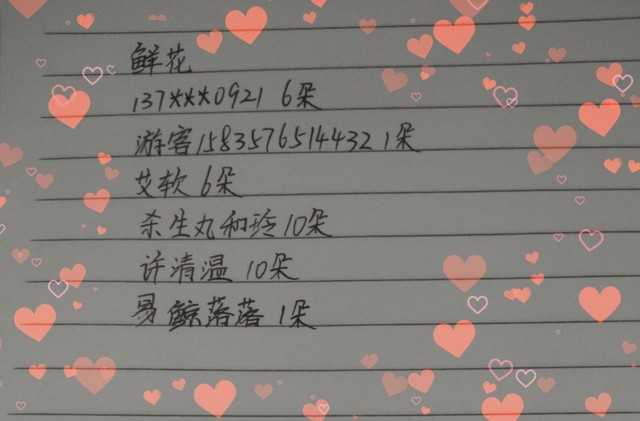 鲜花
137***0921 6朵
游客1583576514432 1朵
艾软 6朵
杀生丸和玲 10朵
许清温 10朵
易鲸落落 1朵